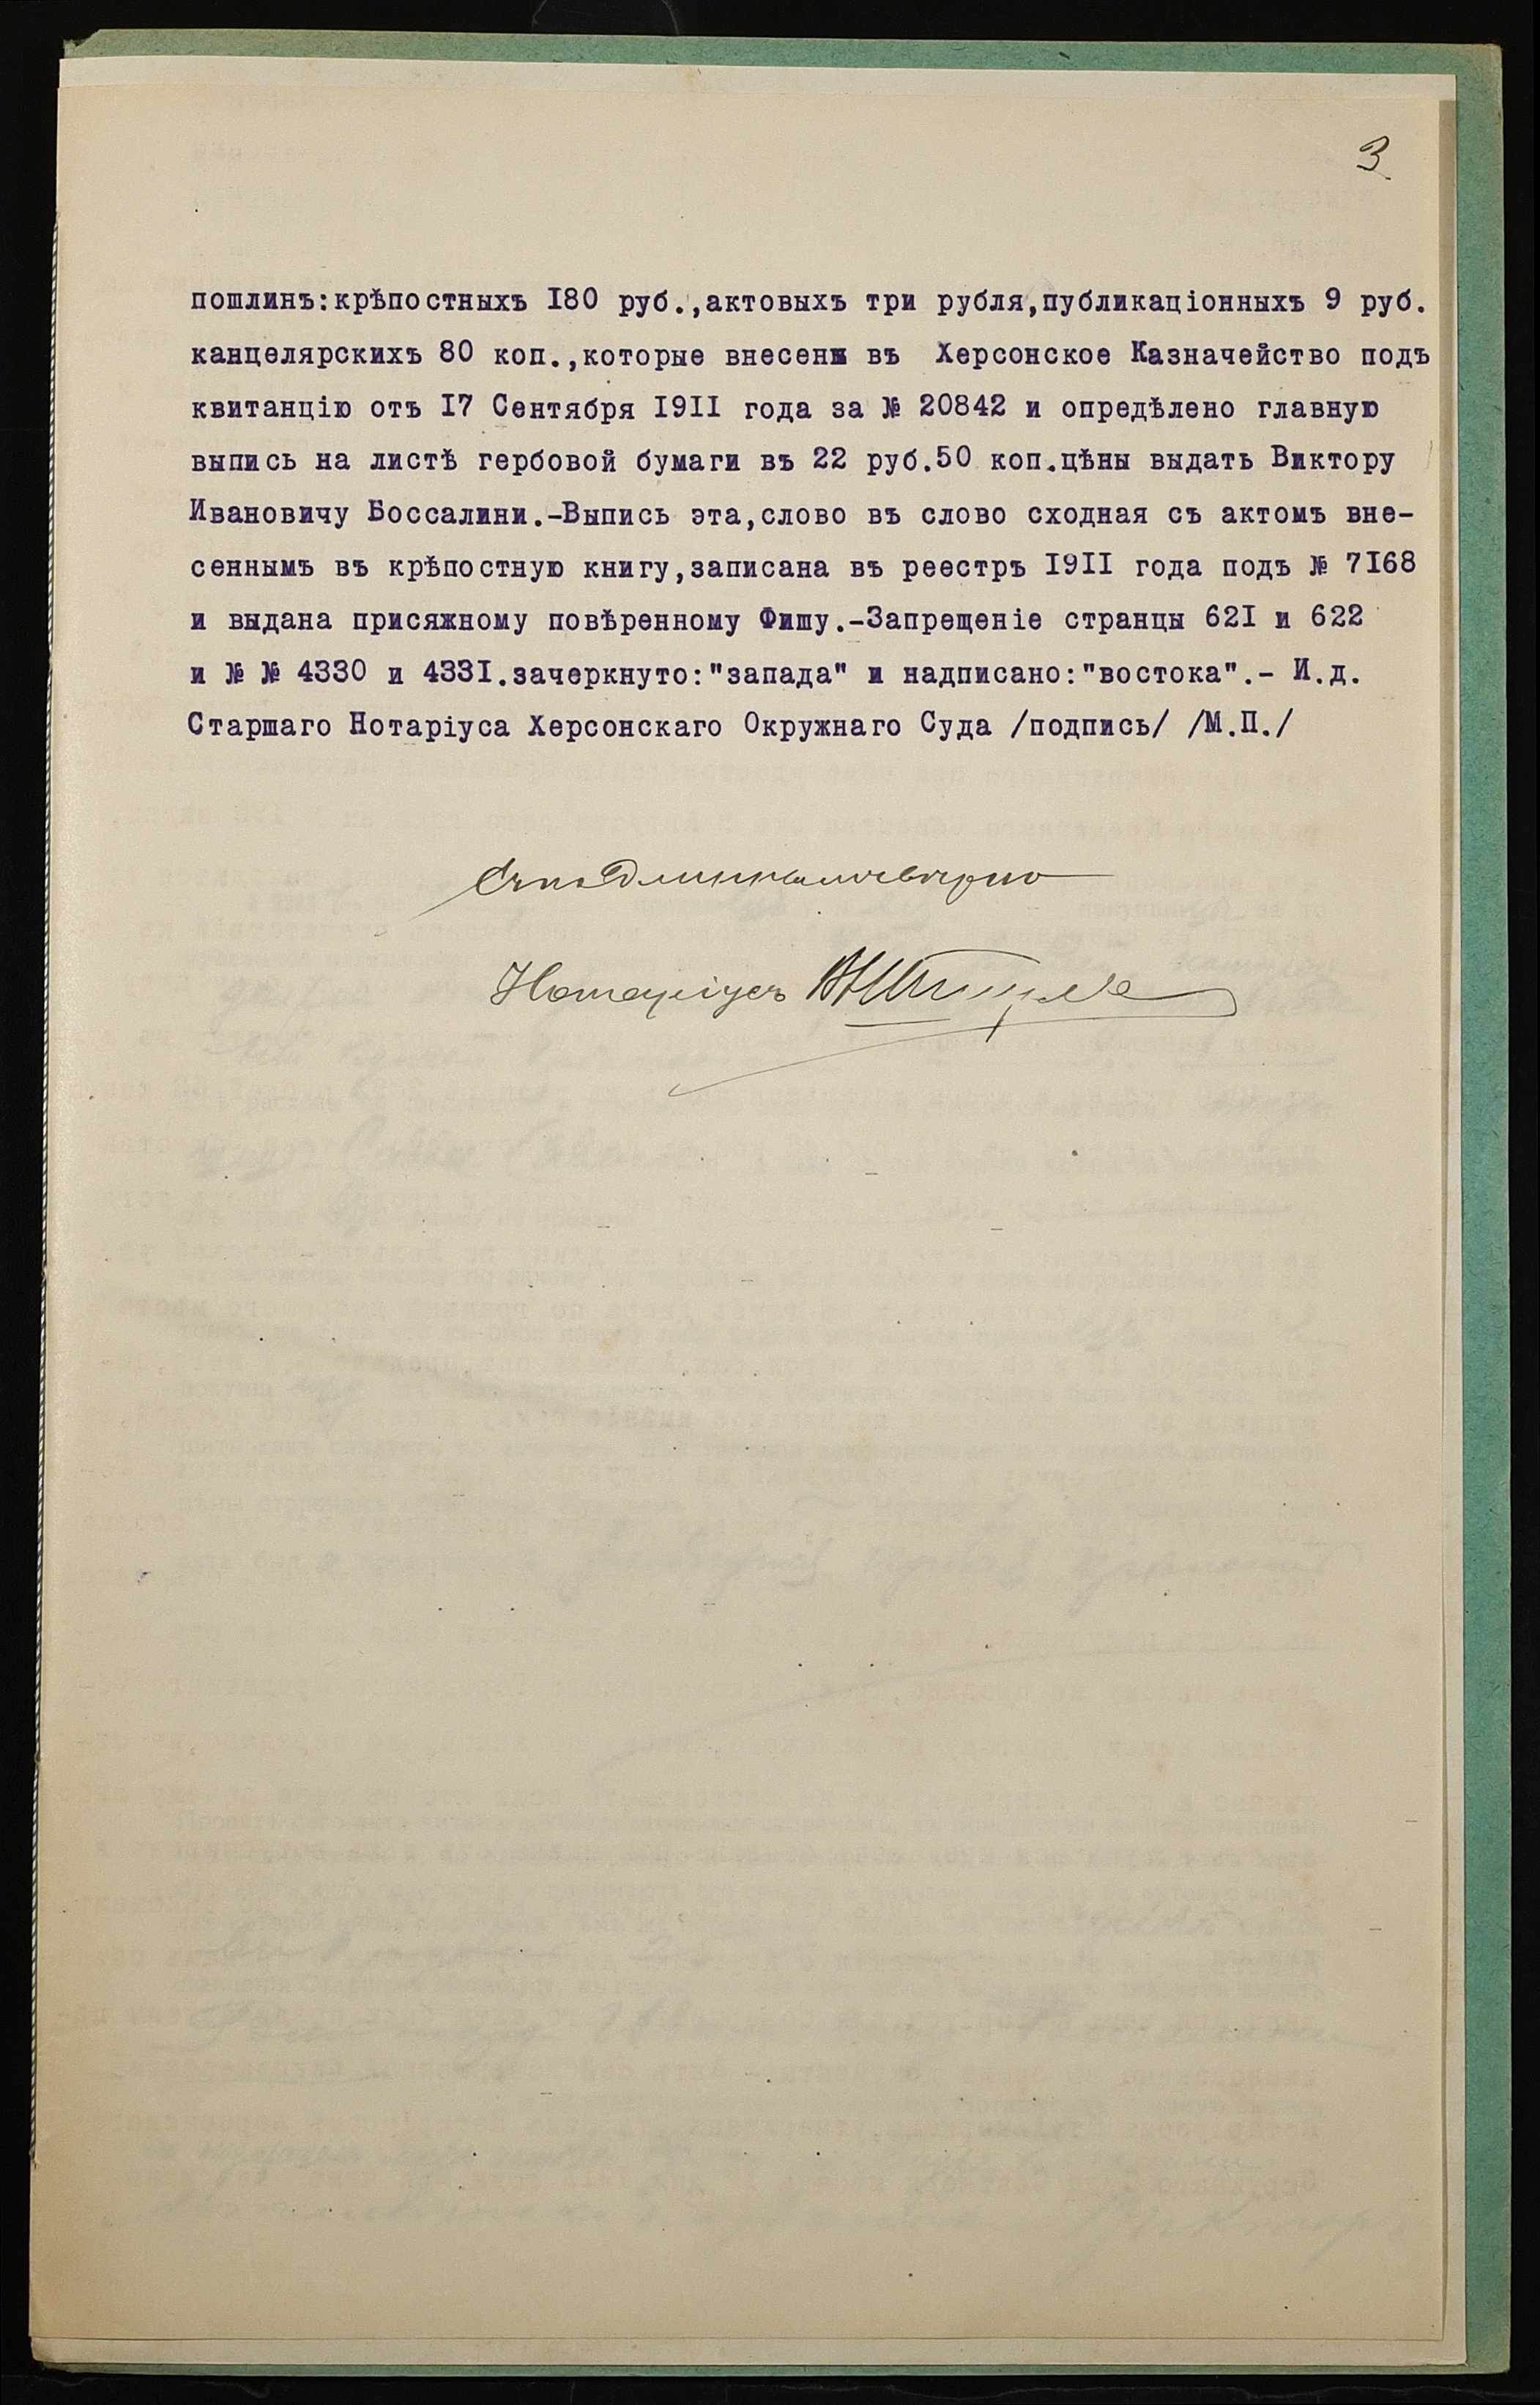 3
пошлинъ:крѣпостныхъ I80 руб.,актовыхъ три рубля,публикаціонныхъ 9 руб.
канцелярскихъ 80 коп.,которые внесены въ Херсонское Казначейство подъ
квитанцію отъ I7 Сентября I9II года за № 20842 и опредѣлено главную
выпись на листѣ гербовой бумаги въ 22 руб.50 коп.цѣны выдать Виктору
Ивановичу Боссалини.-Выпись эта,слово въ слово сходная съ актомъ вне-
сеннымъ въ крѣпостную книгу,записана въ реестръ I9II года подъ № 7I68
и выдана присяжному повѣренному Фишу.-Запрещеніе странцы 62I и 622
и № № 4330 и 433I.зачеркнуто:"запада" и надписано:"востока".- И.д.
Старшаго Нотаріуса Херсонскаго Окружнаго Суда /подпись/ /М.П./
Съ подлиннымъ вѣрно
Нотаріусъ